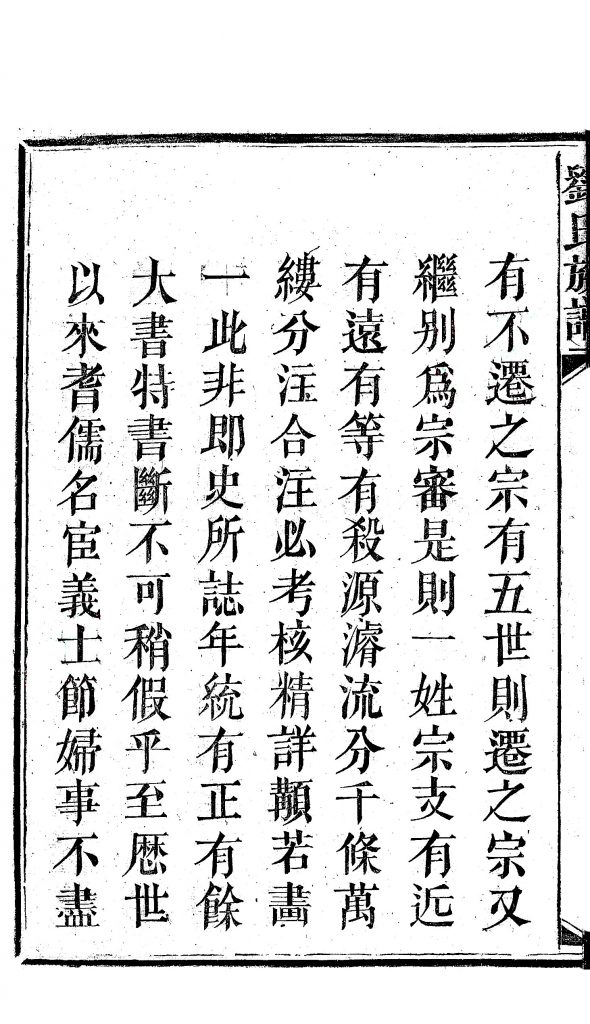 劉氏族譜
有不遷之宗有五世則遷之宗又
繼别爲宗審是則一姓宗支有近
有遠有等有殺源濬流分千條萬
縷分注合注必考核精詳顜若畵
一此非即史所誌年統有正有餘
大書特書斷不可稍假乎至歴世
以來耆儒名宦義士節婦事不盡